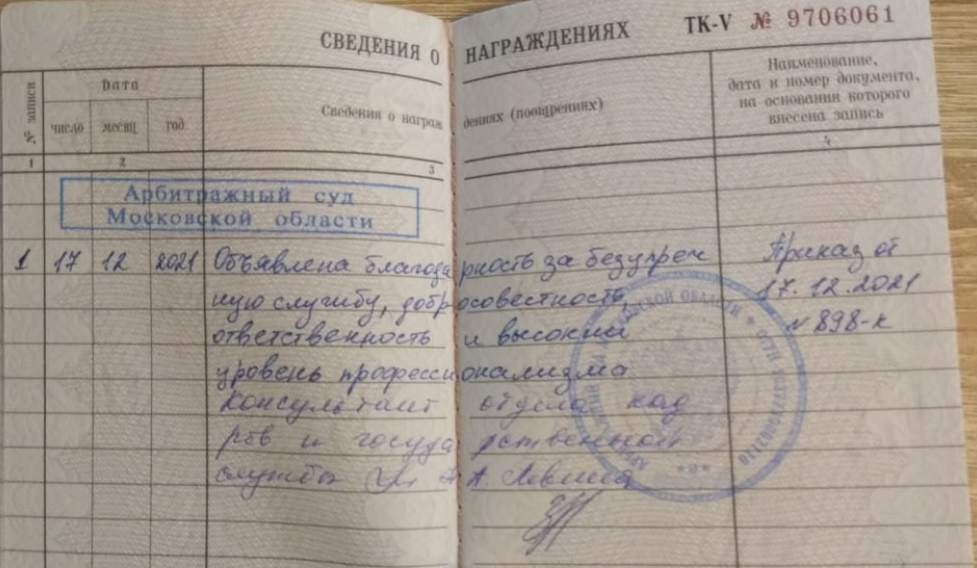 СВЕДЕНИЯ О НАГРАЖДЕНИЯХ ТК-V № 9706061
№ записи
Дата
число месяц год
Сведения о награждениях (поощрениях)
Наименование,
дата и номер документа,
на основании которого
внесена запись
1 2 3 4
Арбитражный суд
Московской области
1 17 12 2021 Объявлена благодарность за безупреч Приказ от
ную службу, добросовестность, 17.12.2021
ответственность и высокий № 898-к
уровень профессионализма
Консультант отдела кад
ров и государственной
службы А.